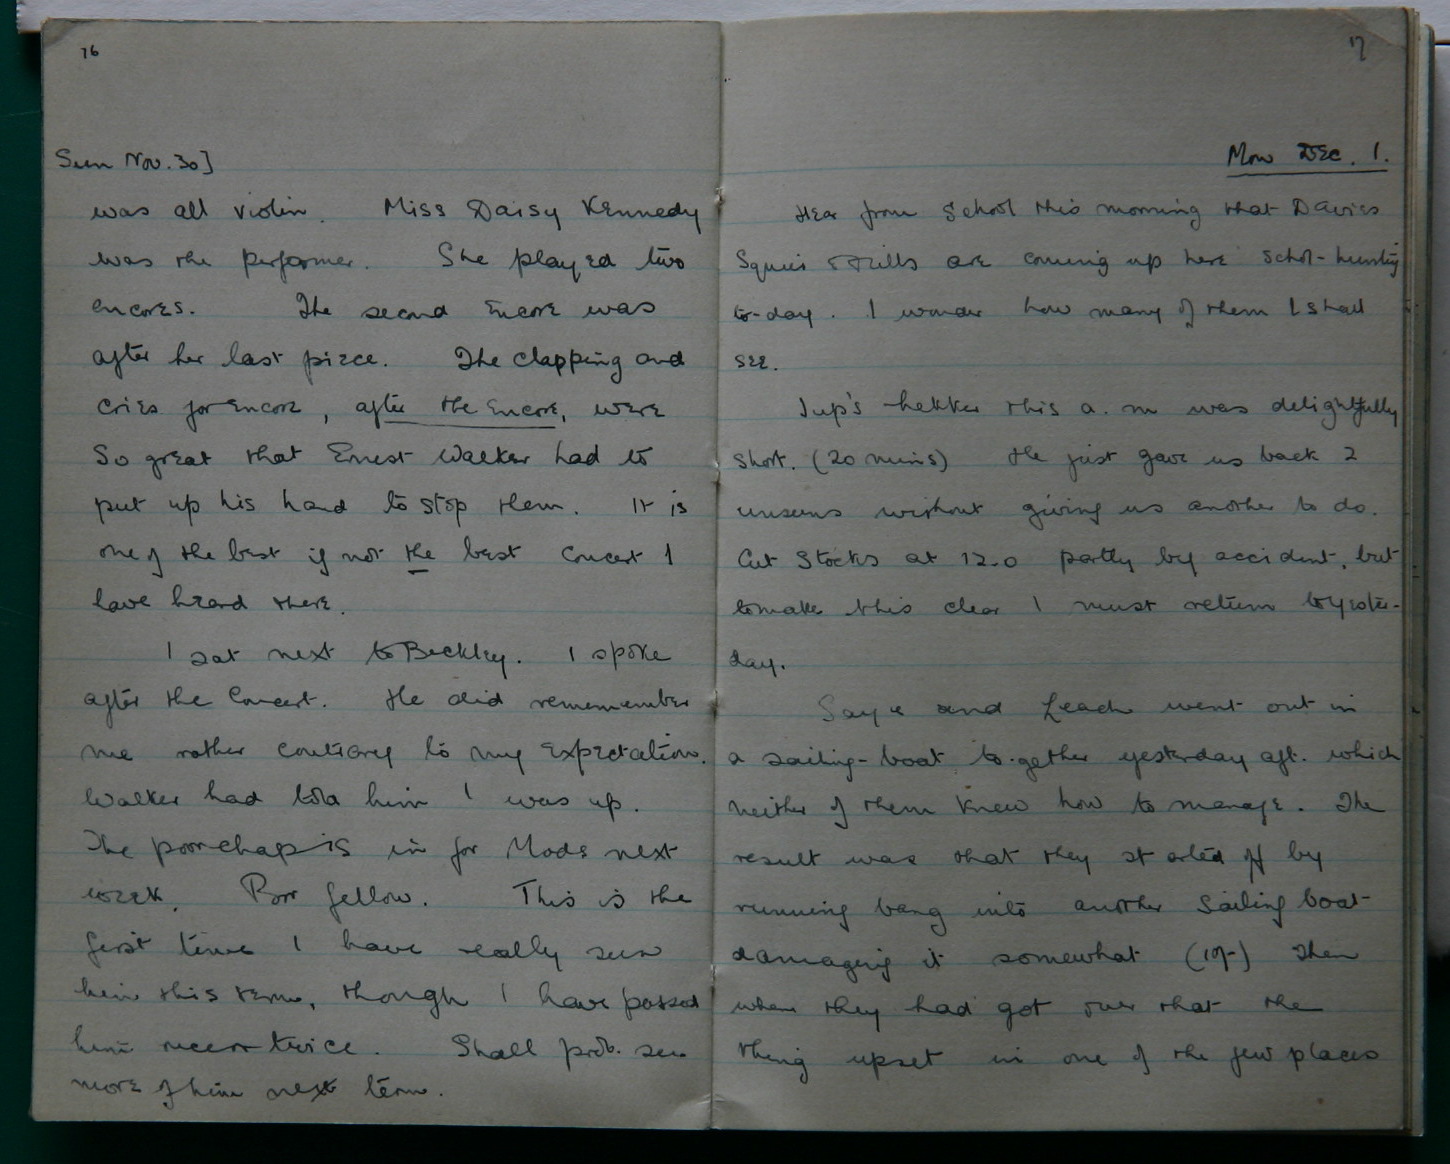 76
Sun Nov. 30]
was all violin. Miss Daisy Kennedy
was the performer. She played two
encores. The second encore was
after her last piece. The clapping and
cries for encore, after the encore, were
so great that Ernest Walker had to
put up his hand to stop them. It is
one of the best if not the best concert I
have heard there.
I sat next to Beckley. I spoke
after the concert. He did rememember
me rather contrary to my expectation.
Walker had told him I was up.
The poor chap is in for Mods next
week. Poor fellow. This is the
first time I have really seen
him this term, though I have passed
him once or twice. Shall prob. see
more of him next term.
17
Mon Dec. 1.
Hear from School this morning that Davies
are coming up here schol-hunting
to-day. I wonder how many of them I shall
see.
Jup's hekker this a.m was delightfully
short. (20 mins) He just gave us back 2
unseens without giving us another to do.
Cut Stocks at 12.0 partly by accident, but
to make this clear I must return to yester-
day.
Saye and Leach went out in
a sailing-boat to-gether yesterday aft. which
neither of them knew how to manage. The
result was that they started off by
running bang into another sailing boat
damaging it somewhat (10/-) Then
when they had got over that the
thing upset in one of the few places